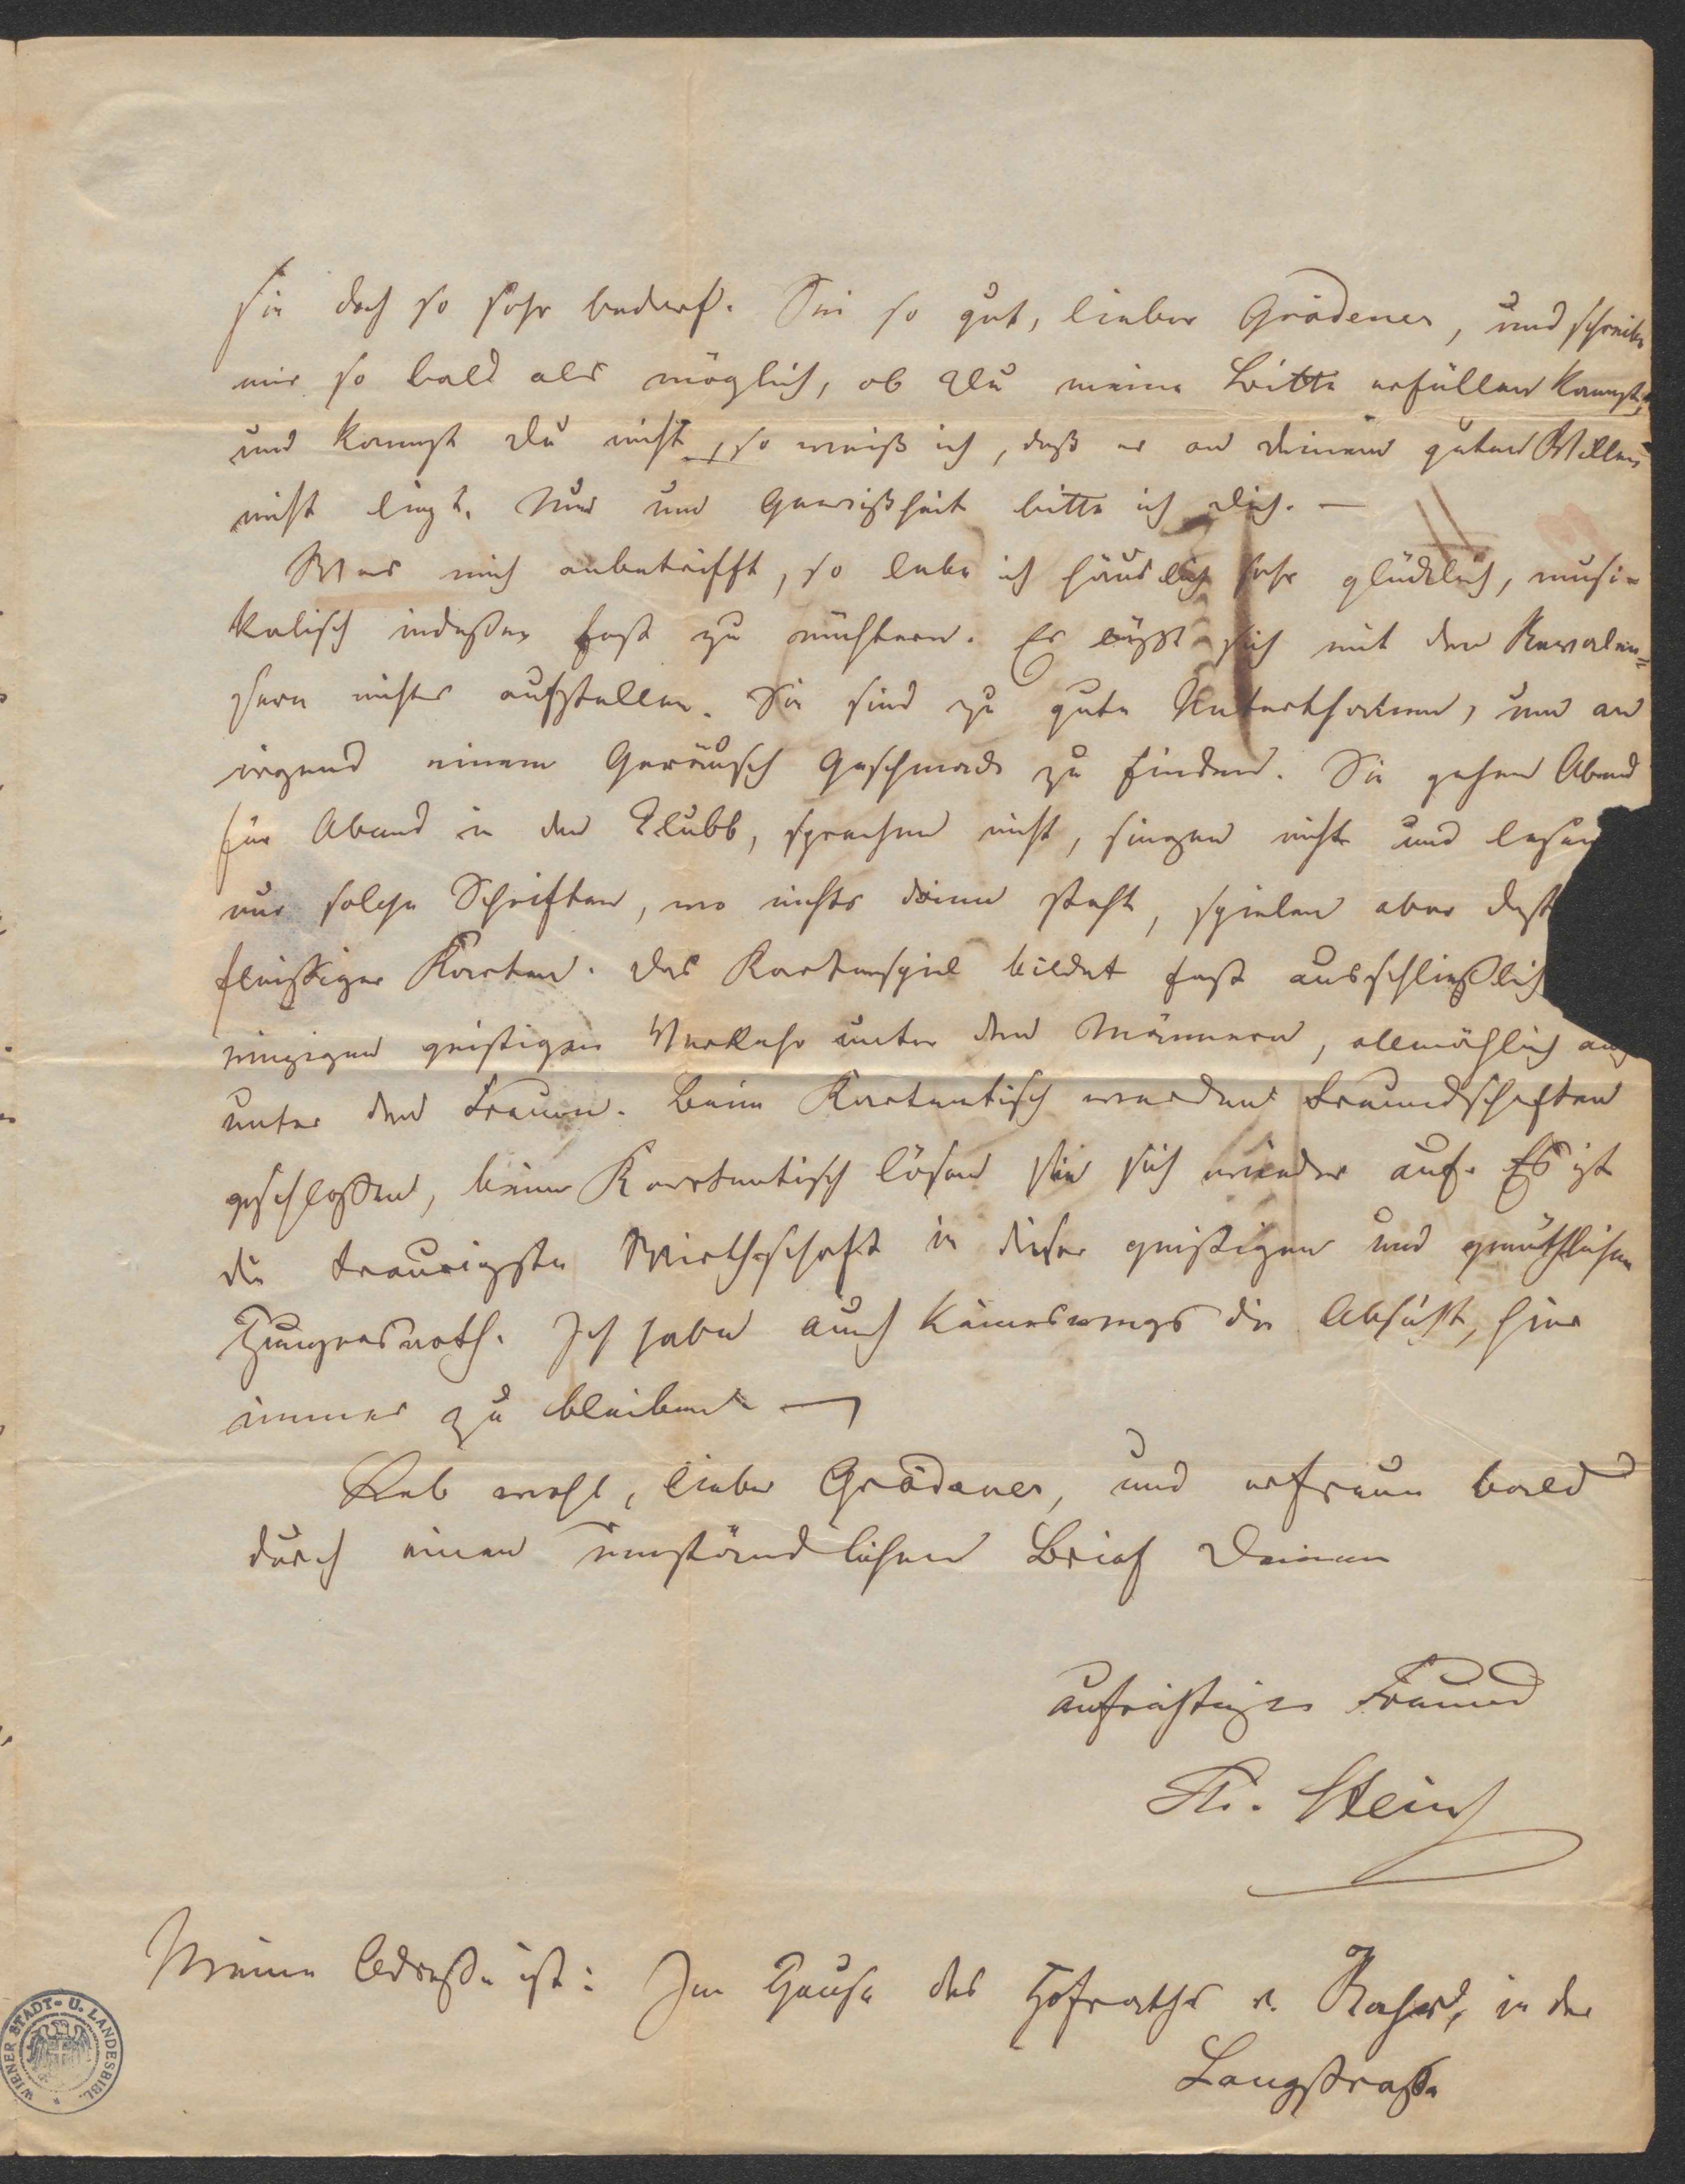 sie doch so sehr bedarf. Sei so gut, lieber Grädener, und schreibe
mir so bald als möglich, ob Du meine Bitte erfüllen kannst,
und kannst Du nicht, so weiß ich, daß es an Deinem guten Willen
nicht liegt. Nur um Gewißheit bitte ich Dich. —
Was mich anbetrifft, so lebe ich häuslich sehr glücklich, musi-
kalisch indessen fast zu nüchtern. Es läßt sich mit den Revalen-
sern nichts aufstellen. Sie sind zu gute Unterthanen, um an
irgend einem Geräusch Geschmack zu finden. Sie gehen Abend
für Abend in den Clubb, sprechen nicht, singen nicht und lesen
nur solche Schriften, wo nichts drinn steht, spielen aber dest
fleissiger Karten. Das Kartenspiel bildet fast ausschließlich
einzigen geistigen Verkehr unter den Männern, allmählich auch
unter den Frauen. Beim Kartentisch werden Freundschaften
geschlossen, beim Kartentisch lösen sie sich wieder auf. Es ist
die traurigste Wirthschaft in dieser geistigen und gemüthlichen
Hungersnoth. Ich habe auch keineswegs die Absicht, hier
immer zu bleiben —
Leb wohl, lieber Grädener, und erfreue bald
durch einen umständlichen Brief Deinen
aufrichtigen Freund
Th. Stein
Meine Adresse ist: Im Hause des Hofraths v. in der
Langstraße
WIENER STADT- U. LANDESBIBL.